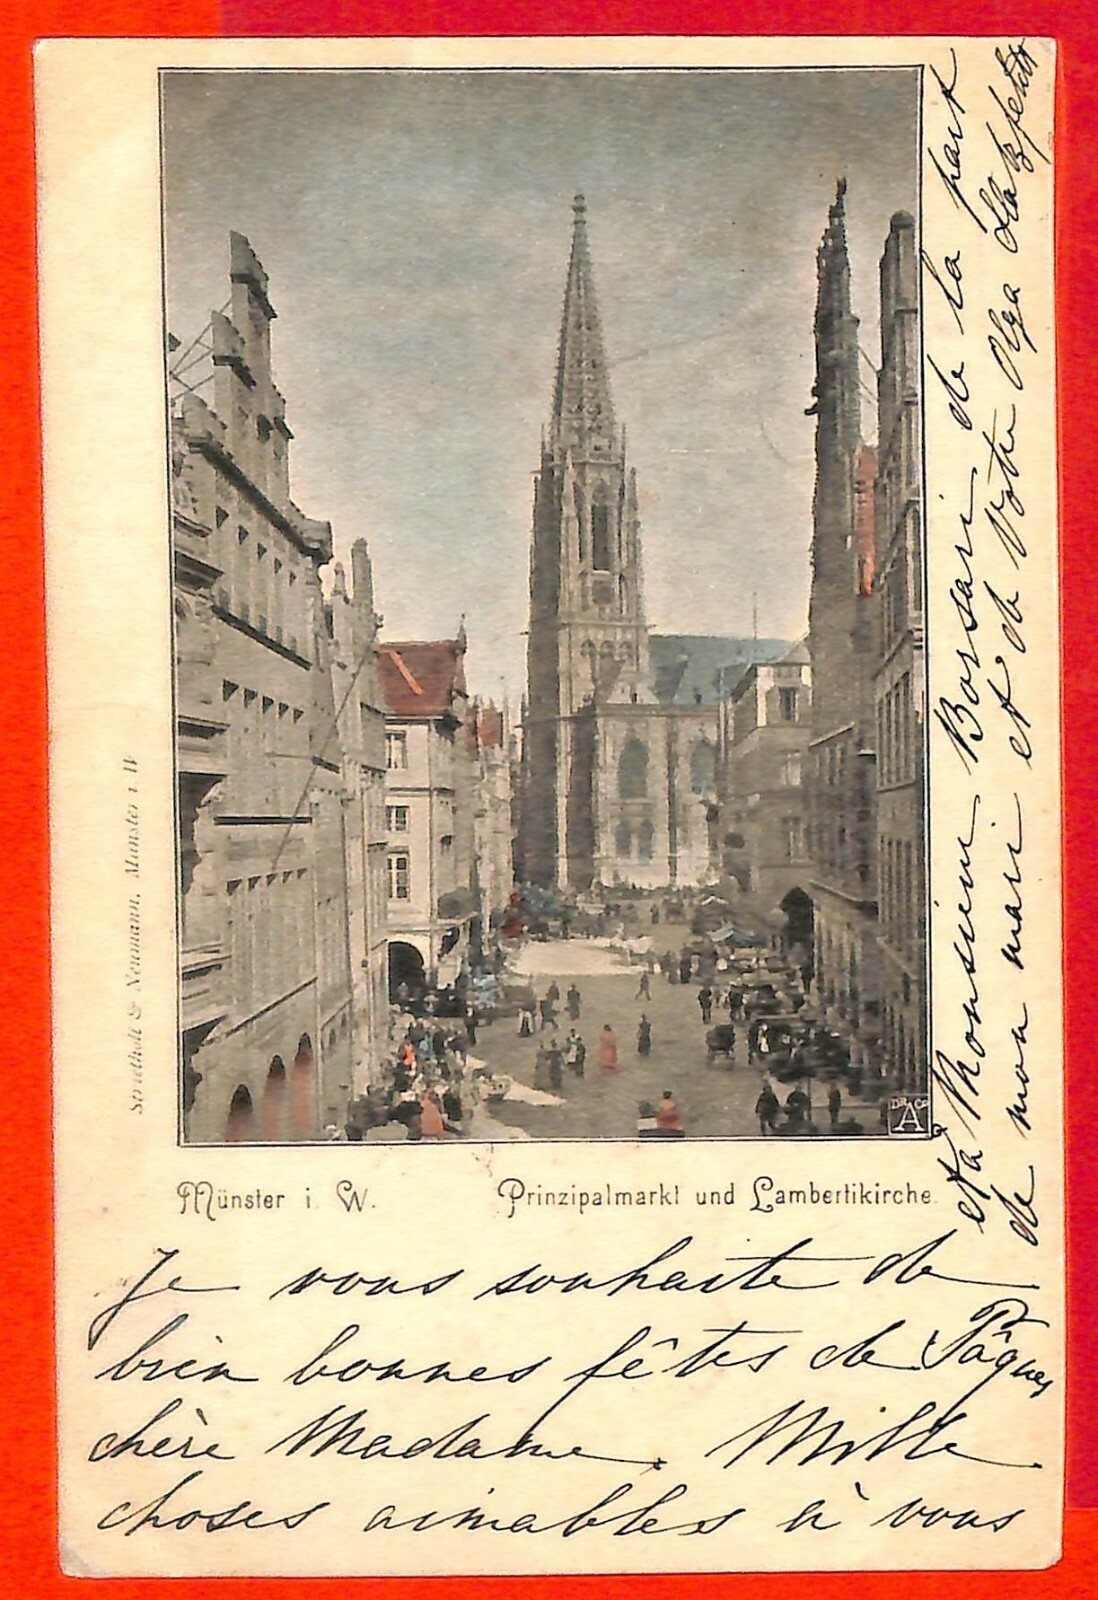 Münster i. W. Prinzipalmarkt und Lambertikirche.
Je vous souhaite de
bien bonnes fêtes de Pâques
chère Madame. Mille
choses aimables à vous
et à Monsieur Borsari de la part
de mon mari et de Votre Olga
Striethelt & Neumann, Münster i. W
DR A Co